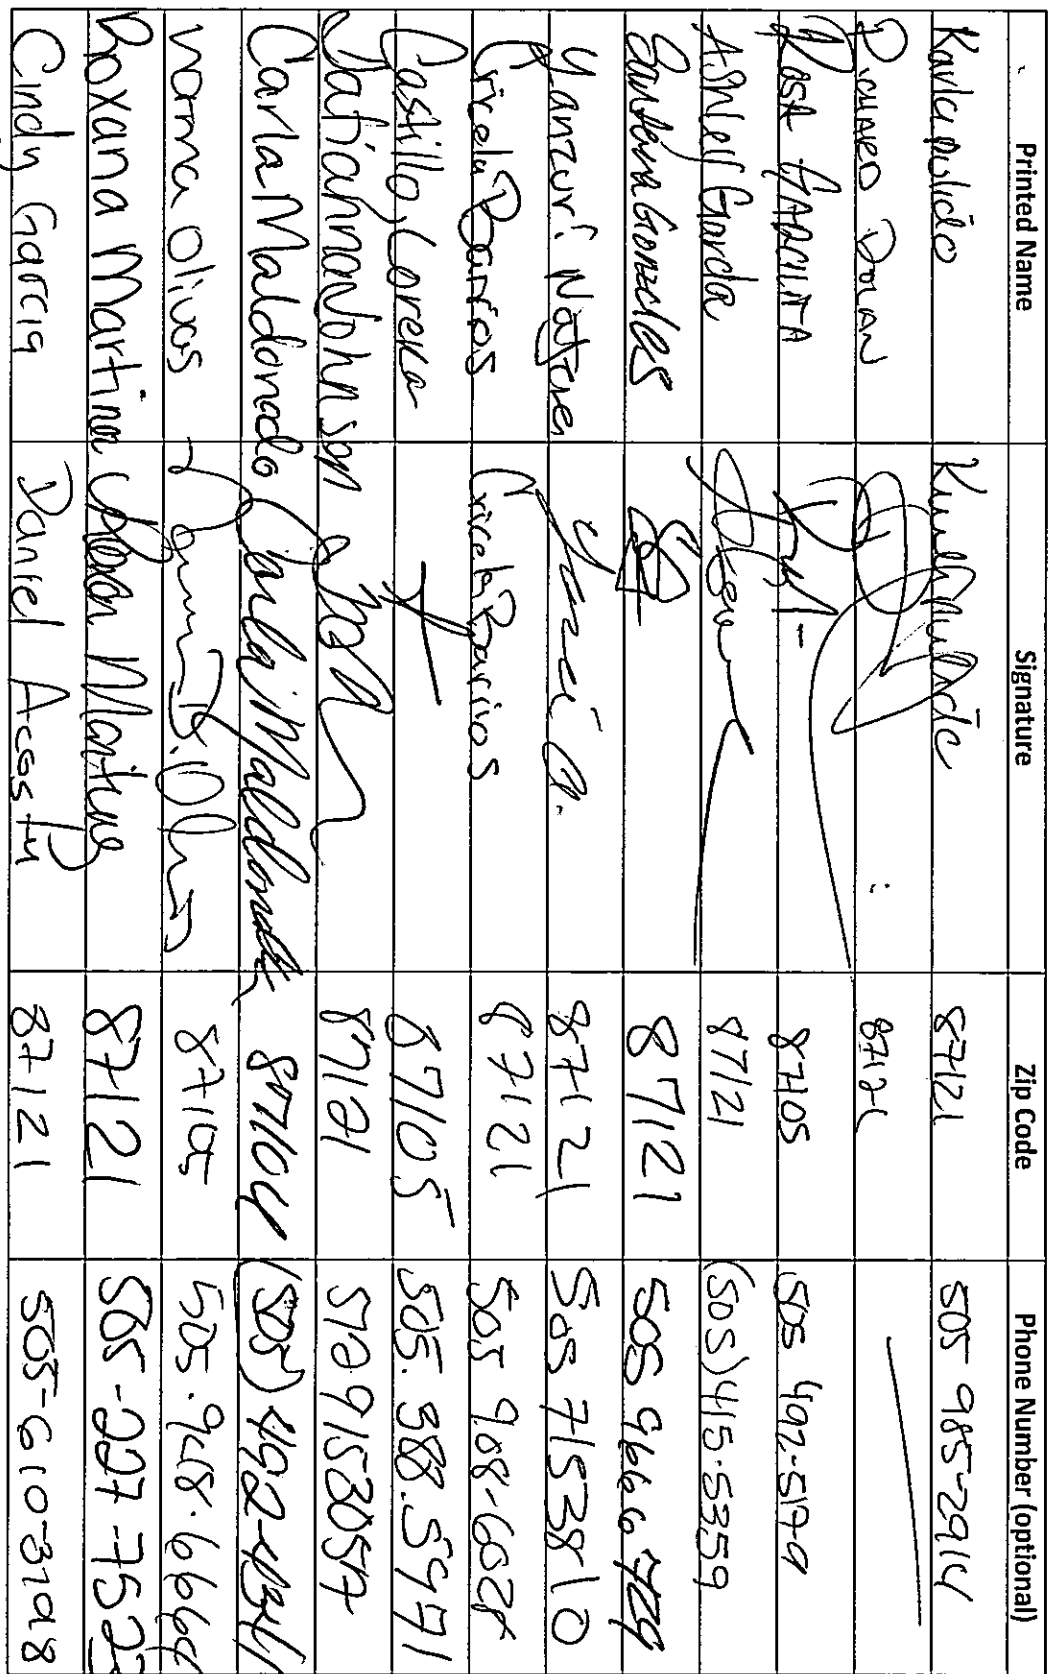 Printed Name Signature Zip Code Phone Number (optional)
Karla pulido 87121 505-985-2914
87121
Rosa 87105 505 492-5179
Ashley Garcia 87121 (505) 415-5359
Santana Gonzales 87121 505 9666 729
Yanzuri 87121 505 7153810
Cricela Barrios Cricela Barrios 87121 505 908-6028
Castillo, Lorena 87105 505.388.5971
Johnson 87121 5129153057
Carla Maldonado Carla Maldonado 87104 (505) 492-4341
Norma Olivas 87105
Roxana Martinez 87121 505-227-7523
Cindy Garcia Daniel Acosta 87121 505-610-3708